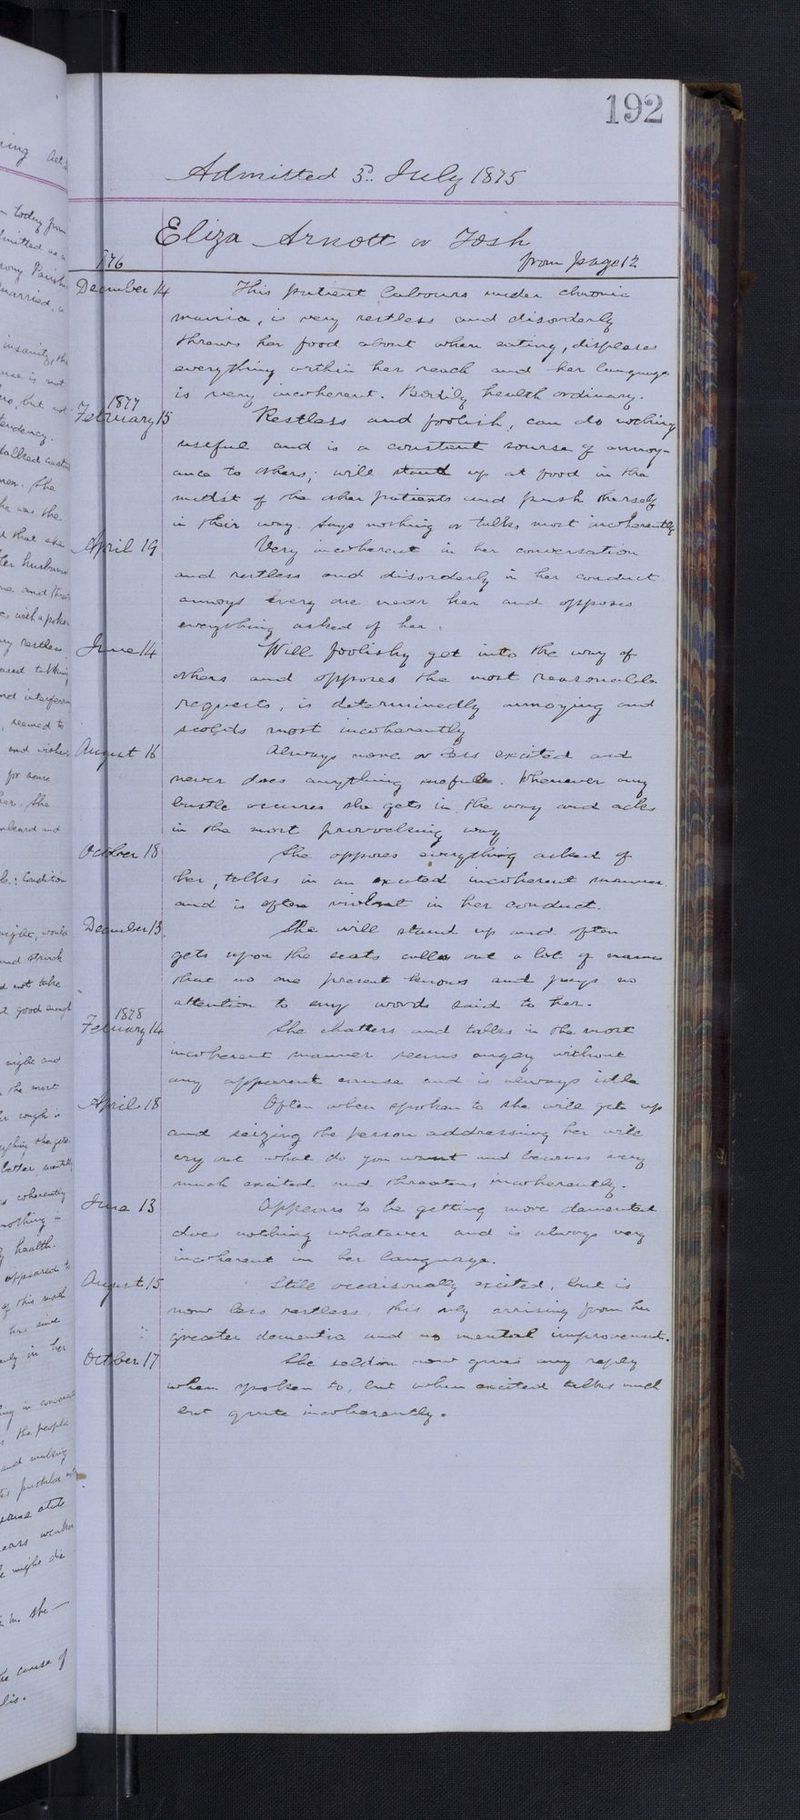 192
Admitted 3rd July 1875
Eliza Arnott or Tosh
from page 12
1876
December 14 This patient labours under chronic
mania, is very restless and disorderly
throws her food about when eating, displaces
everything within her reach and her language
is very incoherent. Bodily health ordinary.
1877
February 15 Restless and foolish, can do nothing
useful and is a constant sourse of annoy-
ance to others; will stand up at food in the
midst of the other patients and push herself
in their way. Says nothing or talks most incoherently
April 19 Very incoherent in her conversation
and restless and disorderly in her conduct
annoys every one near her and opposes
everything asked of her.
June 14 Will foolishly get into the way of
others and opposes the most reasonable
requests, is determinedly annoying and
scolds most incoherently
August 16 Always more or less excited and
never does anything useful. Whenever any
bustle occures she gets in the way and acts
in the most provokeing way
October 18 She opposes everything asked of
her, talks in an excited incoherent manner
and is often violent in her conduct.
December 13. She will stand up and often
gets upon the seats calls out a lot of names
that no one present knows and pays no
attention to any words said to her.
1878
February 14 She chatters and talks in the most
incoherent manner seems angry without
any apparent cause and is always idle
April 18 Often when spoken to she will get up
and seizing the person addressing her will
cry out what do you want and becomes very
much excited and threatens incoherently.
June 13 Appears to be getting more demented
does nothing whatever and is always very
incoherent in her language.
August 15 Still occaisonally excited, but is
now less restless, this only arrising from her
greater dementia and no mental improvement.
October 17 She seldom now gives any reply
when spoken to, but when excited talks much
but quite incoherently.